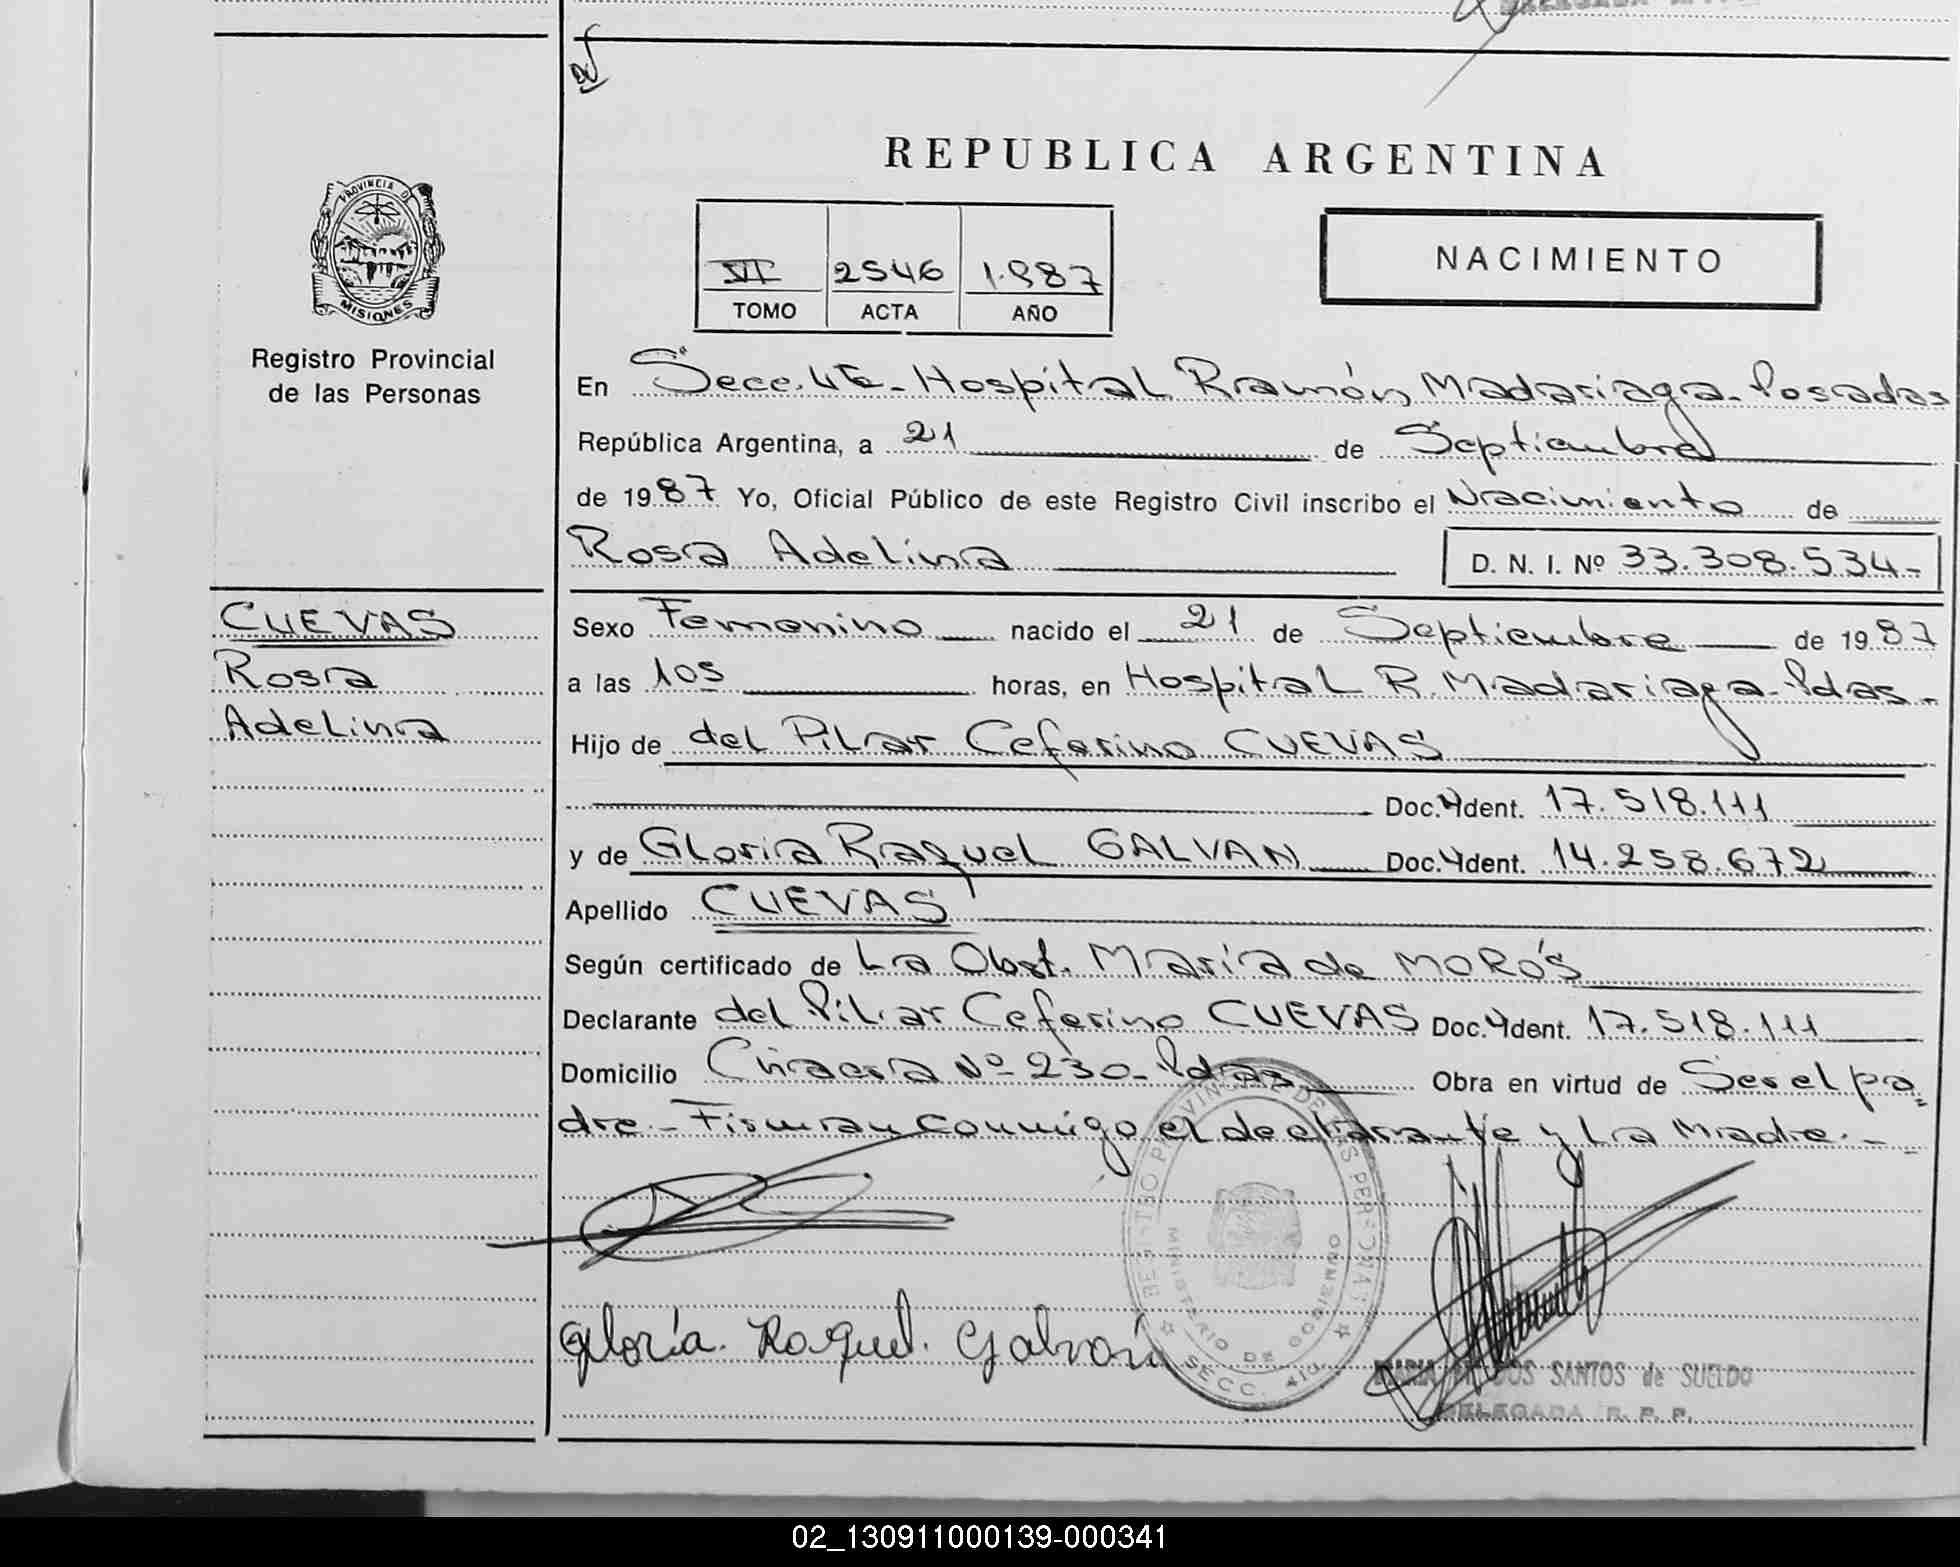 REPUBLICA ARGENTINA
PROVINCIA DE
MISIONES
Registro Provincial
de las Personas
VI 2546 1.987
TOMO ACTA AÑO
NACIMIENTO
En Secc. 4ta - Hospital Ramón Madariaga - Posadas
República Argentina, a 21 de Septiembre
de 1987 Yo, Oficial Público de este Registro Civil inscribo el Nacimiento de
Rosa Adelina D. N. I. Nº 33.308.534-
CUEVAS
Rosa
Adelina
Sexo Femenino nacido el 21 de Septiembre de 1987
a las 105 horas, en Hospital R. Madariaga - Pdas -
Hijo de del Pilar Ceferino CUEVAS
Doc. Ident. 17.518.111
y de Gloria Raquel GALVAN Doc. Ident. 14.258.672
Apellido CUEVAS
Según certificado de La Obst. María de MORÓS
Declarante del Pilar Ceferino CUEVAS Doc. Ident. 17.518.111
Domicilio Nº 230 - Pdas Obra en virtud de Ser el pa=
dre - Firman conmigo el declarante y La Madre. -
REGISTRO PROVINCIAL DE LAS PERSONAS
MINISTERIO DE GOBIERNO
SECC. 4ta
Gloria. Raquel. Galván
MARIA DOS SANTOS de SUELDO
DELEGADA R. P. P.
02_130911000139-000341